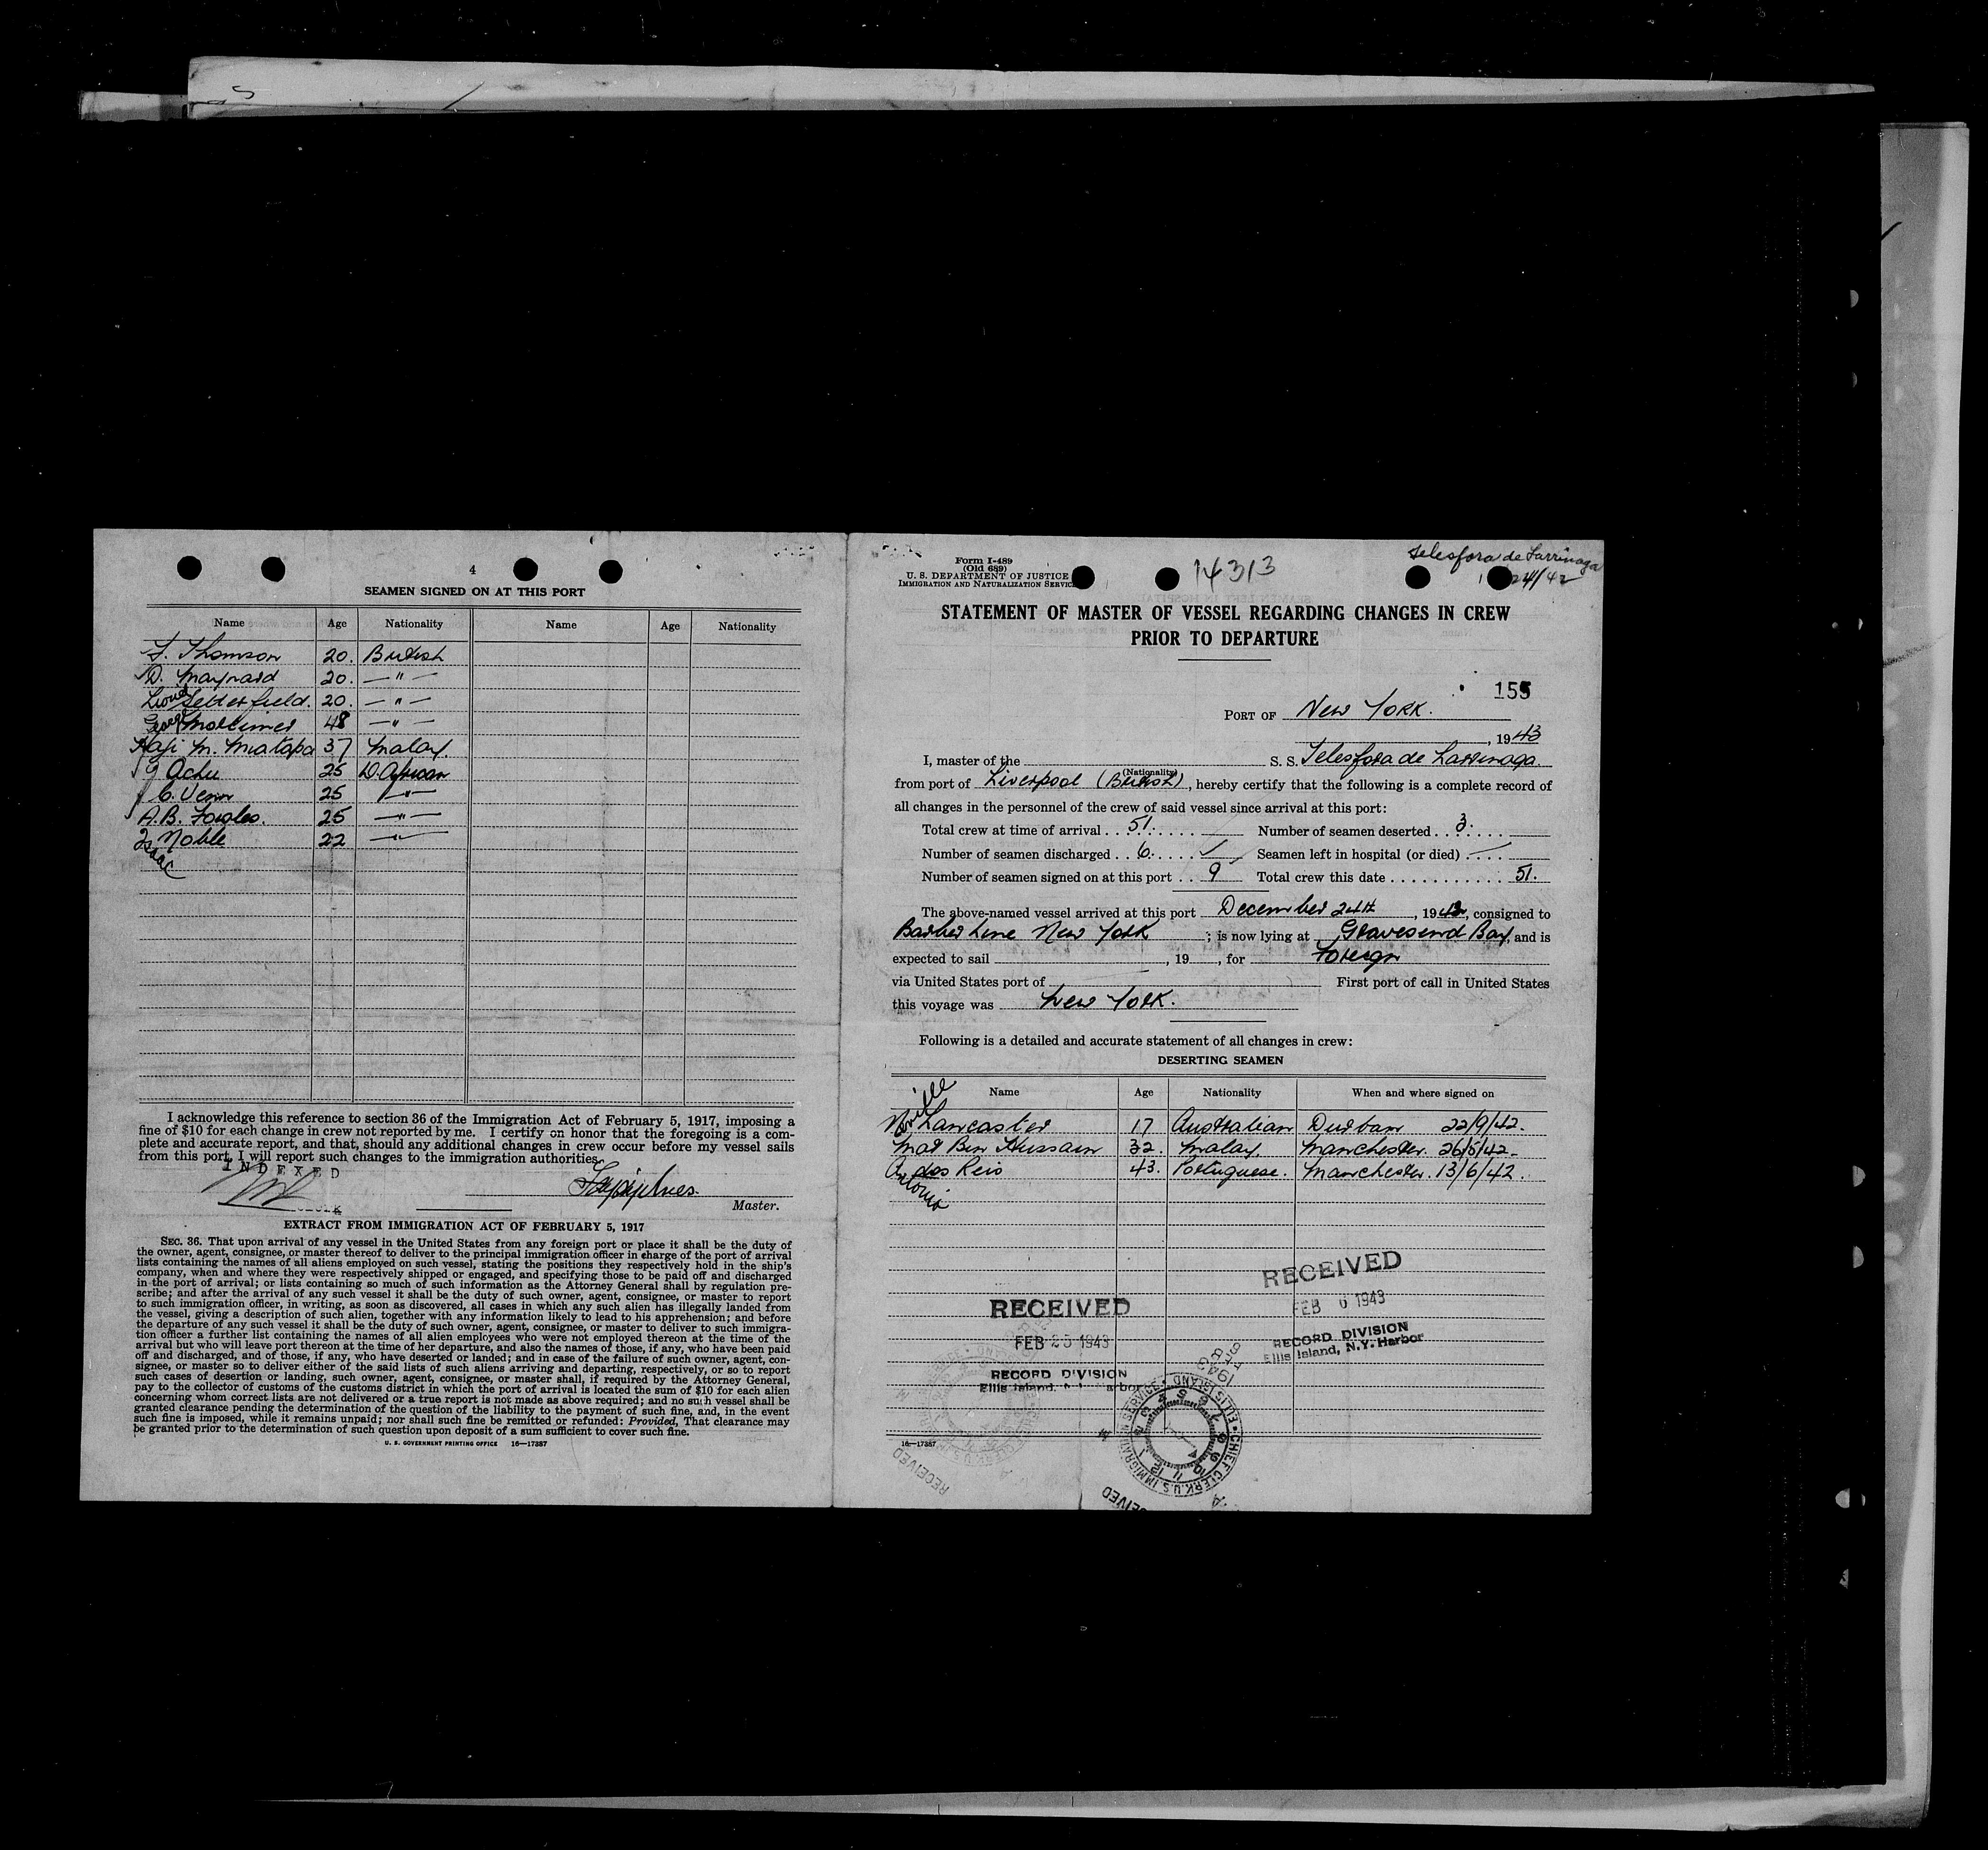 4
SEAMEN SIGNED ON AT THIS PORT
Name Age Nationality Name Age Nationality
Thomson 20. British
D. Maynard 20. — " —
Setterfield. 20. — " —
Mortimer 48 — " —
Haji M. Miatapa 37 Malay.
Achu 25 W. African
C. Venn 25 — " —
A.B. Fowles. 25 — " —
Noble 22 — " —
Isaac
I acknowledge this reference to section 36 of the Immigration Act of February 5, 1917, imposing a
fine of $10 for each change in crew not reported by me. I certify on honor that the foregoing is a com-
plete and accurate report, and that, should any additional changes in crew occur before my vessel sails
from this port, I will report such changes to the immigration authorities.
INDEXED
Master.
EXTRACT FROM IMMIGRATION ACT OF FEBRUARY 5, 1917
SEC. 36. That upon arrival of any vessel in the United States from any foreign port or place it shall be the duty of
the owner, agent, consignee, or master thereof to deliver to the principal immigration officer in charge of the port of arrival
lists containing the names of all aliens employed on such vessel, stating the positions they respectively hold in the ship's
company, when and where they were respectively shipped or engaged, and specifying those to be paid off and discharged
in the port of arrival; or lists containing so much of such information as the Attorney General shall by regulation pre-
scribe; and after the arrival of any such vessel it shall be the duty of such owner, agent, consignee, or master to report
to such immigration officer, in writing, as soon as discovered, all cases in which any such alien has illegally landed from
the vessel, giving a description of such alien, together with any information likely to lead to his apprehension; and before
the departure of any such vessel it shall be the duty of such owner, agent, consignee, or master to deliver to such immigra-
tion officer a further list containing the names of all alien employees who were not employed thereon at the time of the
arrival but who will leave port thereon at the time of her departure, and also the names of those, if any, who have been paid
off and discharged, and of those, if any, who have deserted or landed; and in case of the failure of such owner, agent, con-
signee, or master so to deliver either of the said lists of such aliens arriving and departing, respectively, or so to report
such cases of desertion or landing, such owner, agent, consignee, or master shall, if required by the Attorney General,
pay to the collector of customs of the customs district in which the port of arrival is located the sum of $10 for each alien
concerning whom correct lists are not delivered or a true report is not made as above required; and no such vessel shall be
granted clearance pending the determination of the question of the liability to the payment of such fine, and, in the event
such fine is imposed, while it remains unpaid; nor shall such fine be remitted or refunded: Provided, That clearance may
be granted prior to the determination of such question upon deposit of a sum sufficient to cover such fine.
U. S. GOVERNMENT PRINTING OFFICE 16—17387
Form I-489
(Old 689)
U. S. DEPARTMENT OF JUSTICE
IMMIGRATION AND NATURALIZATION SERVICE
14313
Telesfora de Larrinaga
24/42
STATEMENT OF MASTER OF VESSEL REGARDING CHANGES IN CREW
PRIOR TO DEPARTURE
155
PORT OF New York.
, 1943
I, master of the S. S. Telesfora de Larrinaga
(Nationality)
from port of Liverpool (British), hereby certify that the following is a complete record of
all changes in the personnel of the crew of said vessel since arrival at this port:
Total crew at time of arrival . . 51. . . . . Number of seamen deserted . . 3. . . .
Number of seamen discharged . . 6. . . . . Seamen left in hospital (or died) . . . .
Number of seamen signed on at this port . . 9 Total crew this date . . . . . . . . . . . 51.
The above-named vessel arrived at this port December 24th, 1942, consigned to
Barber Line New York ; is now lying at Gravesend Bay, and is
expected to sail , 19 , for Foreign
via United States port of First port of call in United States
this voyage was New York.
Following is a detailed and accurate statement of all changes in crew:
DESERTING SEAMEN
Name Age Nationality When and where signed on
Lancaster 17 Australian Durban 22/9/42.
Mat Bin Hussain 32. Malay. Manchester. 26/5/42-
dos Reis 43. Portuguese. Manchester. 13/6/42.
RECEIVED
FEB 25 1943
RECORD DIVISION
Ellis Island,
RECEIVED
FEB 6 1943
RECORD DIVISION
Ellis Island, N.Y. Harbor
CHIEF CLERK, U.S. IMMIGRATION SERVICE • ELLIS ISLAND
16—17387
RECEIVED